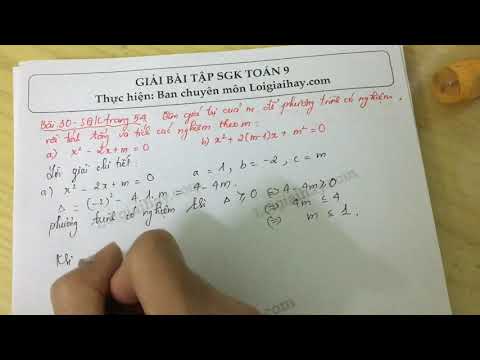 GIẢI BÀI TẬP SGK TOÁN 9
Thực hiện: Ban chuyên môn Loigiaihay.com
Bài 30 - SGK trang 54. Tìm giá trị của m để phương trình có nghiệm,
rồi tính tổng và tích các nghiệm theo m:
a) x² - 2x + m = 0 b) x² + 2(m-1)x + m² = 0
Lời giải chi tiết
a) x² - 2x + m = 0 a = 1, b = -2, c = m
Δ = (-1)² - 4.1.m = 4 - 4m.
phương trình có nghiệm khi Δ ≥ 0 ⇔ 4 - 4m ≥ 0
⇔ 4m ≤ 4
⇔ m ≤ 1.
Khi